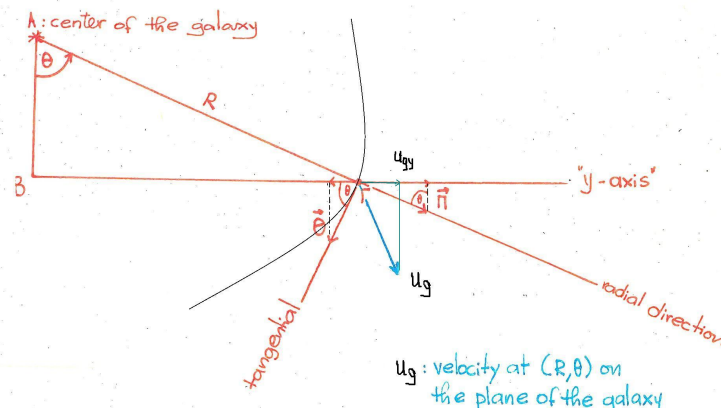 A: center of the galaxy
θ
R
u_gy
B
Γ
"y-axis"
θ
θ
Π⃗
Θ⃗
u_g
radial direction
tangential
u_g: velocity at (R,θ) on
the plane of the galaxy